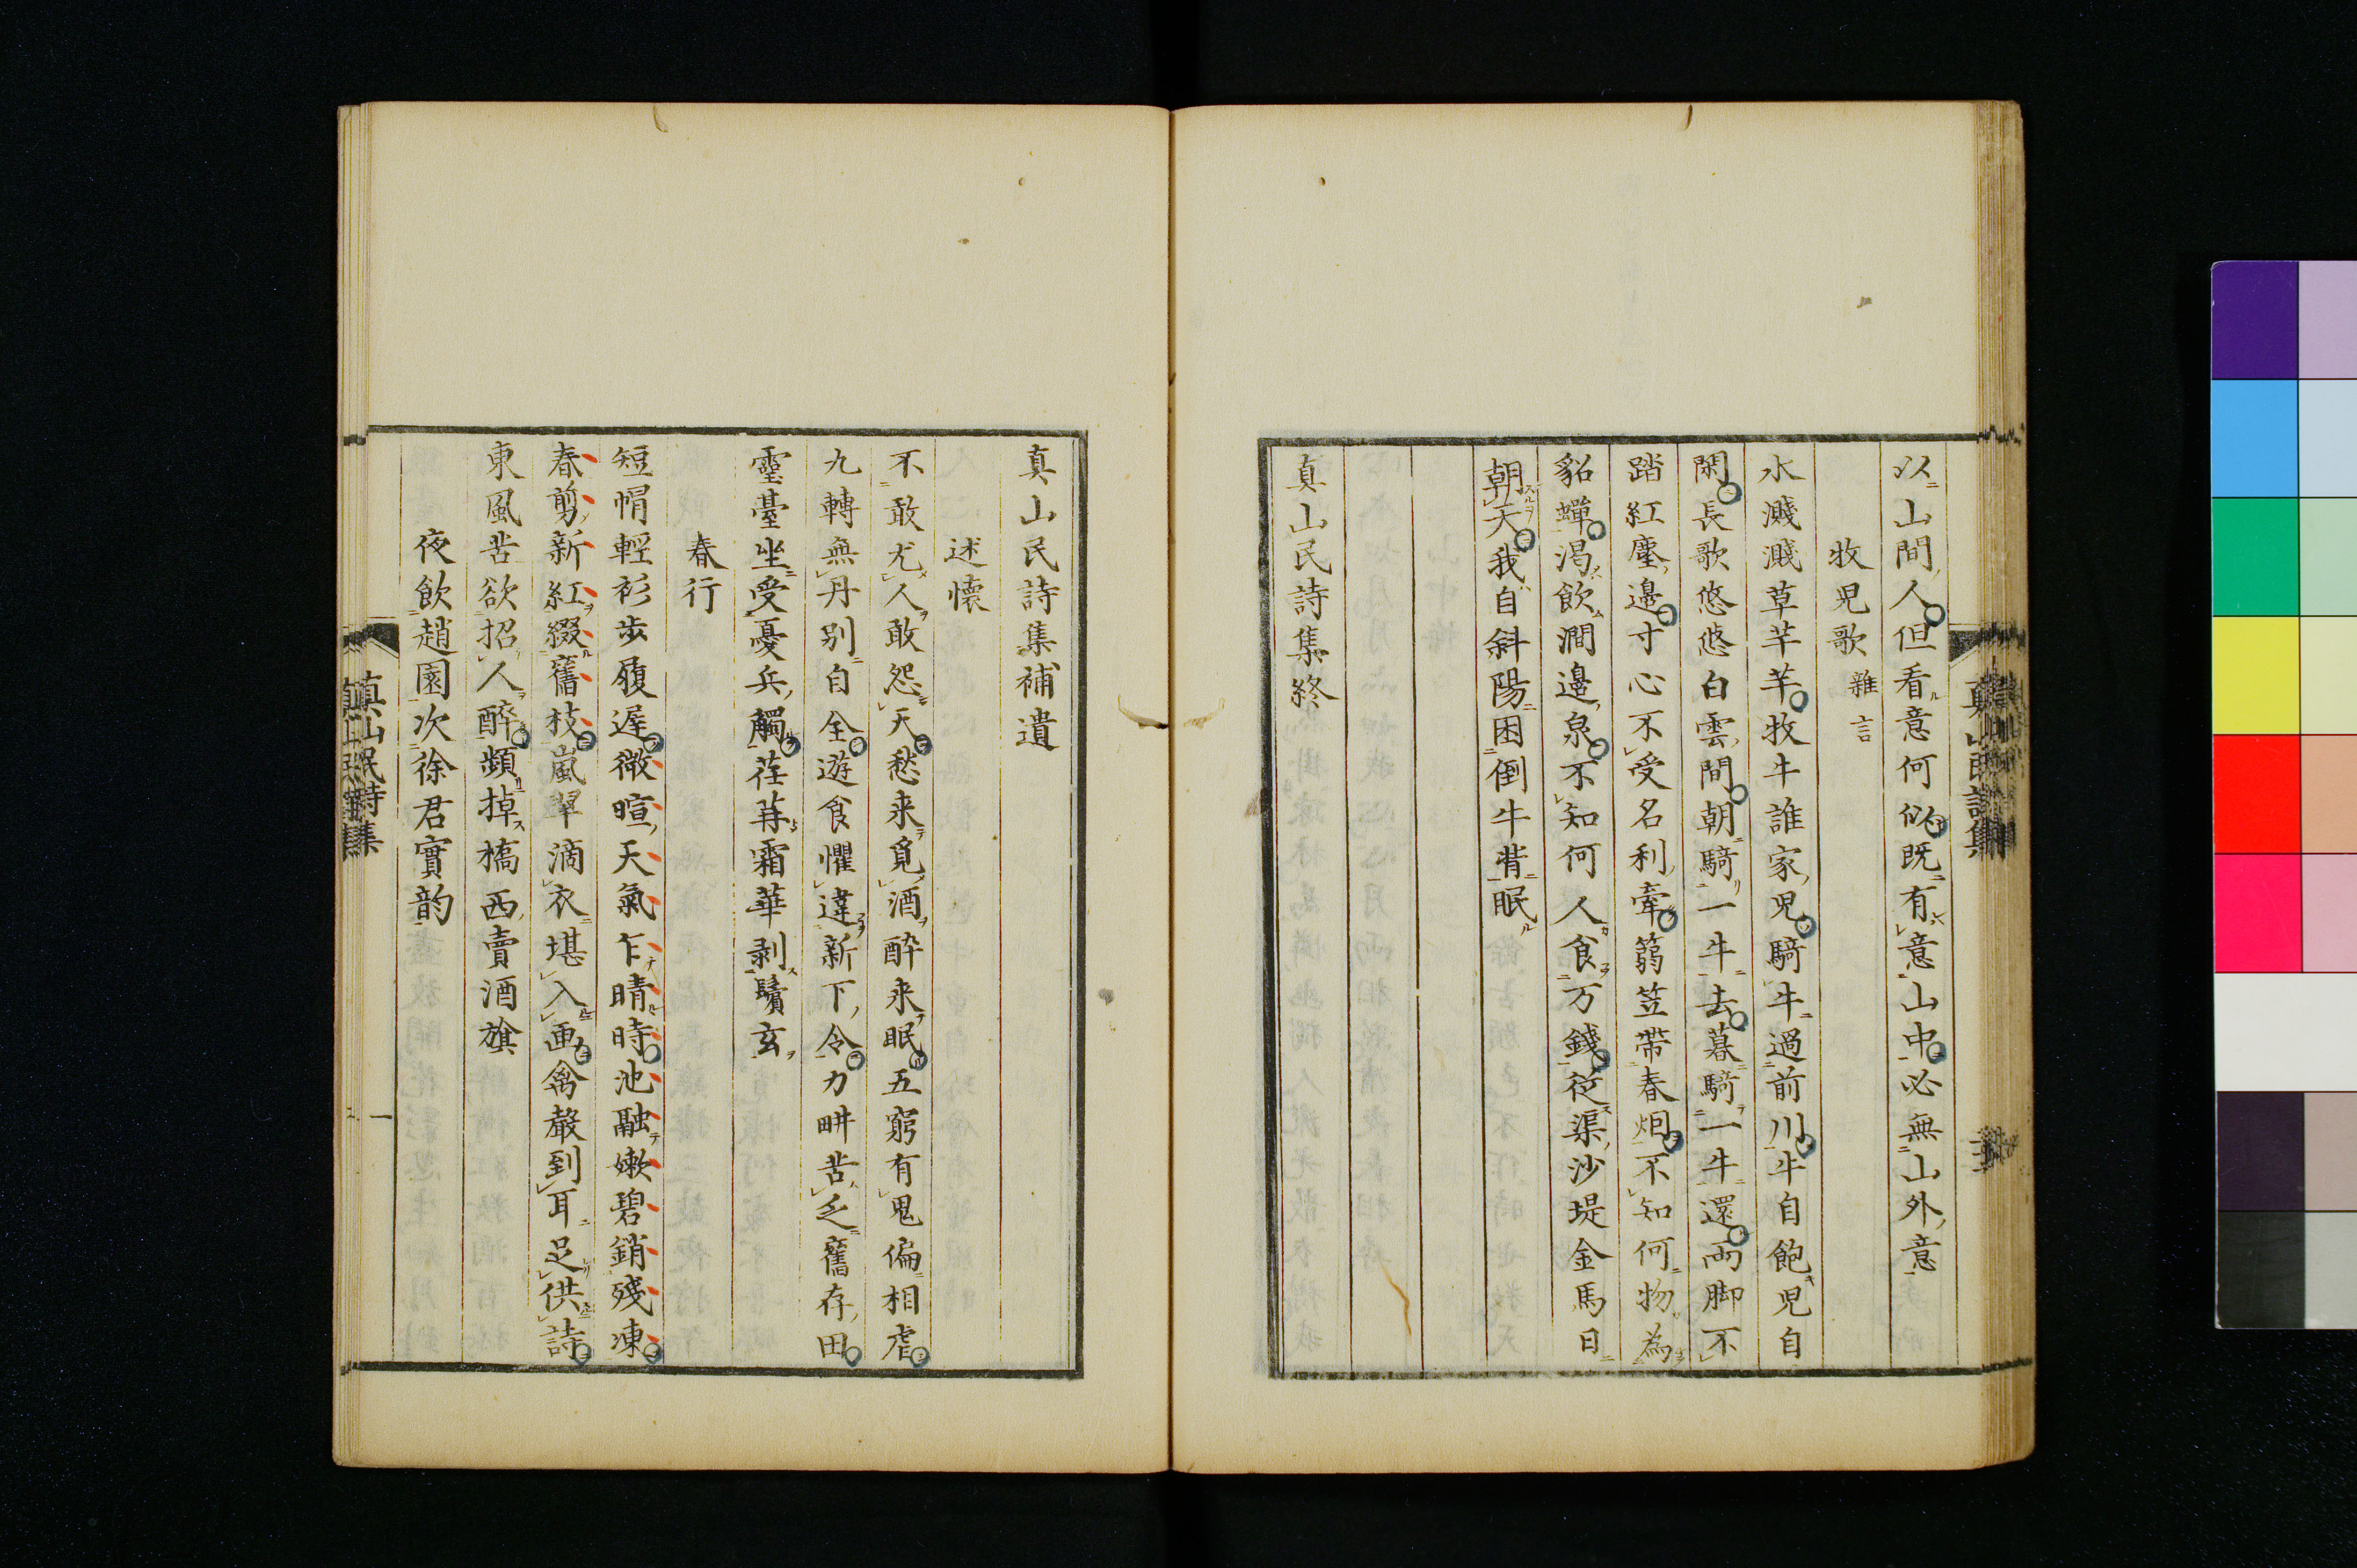 以山間人但看意何似既有意山中必無山外意
牧児歌 雜言
水濺濺草芊芊牧牛誰家児騎牛過前川牛自飽児自
閑長歌悠悠白雲間朝騎一牛去暮騎一牛還兩脚不
踏紅塵邊寸心不受名利牽蒻笠帶春烟不知何物為
貂蟬渇飲澗邊泉不知何人食万錢從渠沙堤金馬日
朝天我自斜陽困倒牛背眠
真山民詩集終
真山民詩集補遺
述懷
不敢尤人敢怨天愁来覓酒醉来眠五窮有鬼偏相虐
九轉無丹別自全遊食懼違新下令力畊苦乏舊存田
靈臺坐受憂兵觸荏苒霜華剥鬢玄
春行
短帽輕衫步履遅微暄天氣乍晴時池融嫩碧銷殘凍
春剪新紅綴舊枝嵐翠滴衣堪入画禽聲到耳足供詩
東風苦欲招人醉頻掉橋西賣酒旗
夜飲趙園次徐君實韵
真山民詩集
一